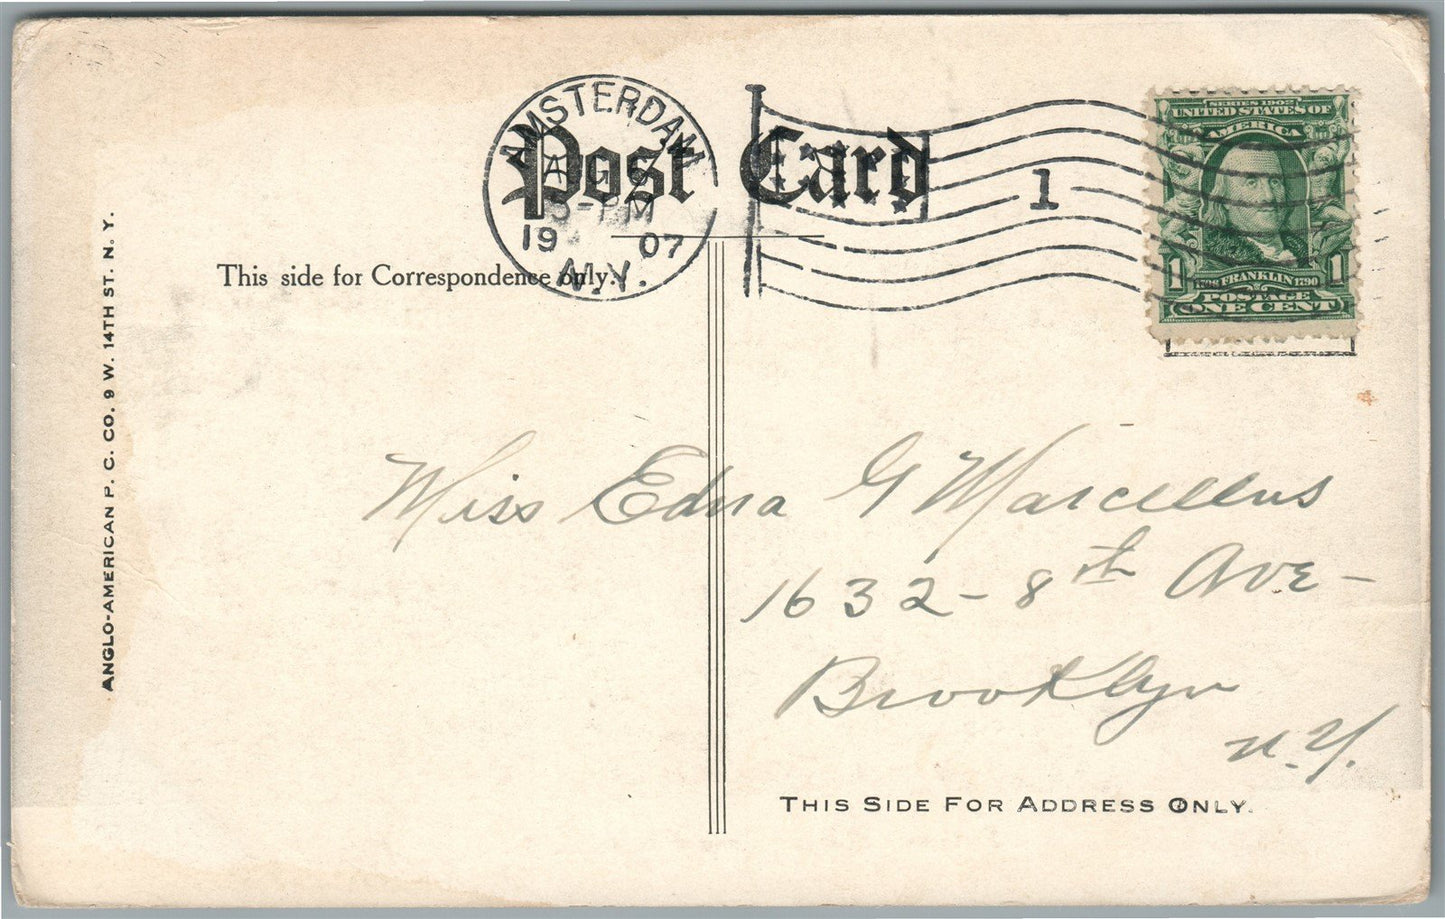 AMSTERDAM
AUG
3-PM
19 07
N.Y.
Post Card
1
SERIES 1902
UNITED STATES OF
AMERICA
1 FRANKLIN 1790 1
POSTAGE
ONE CENT
This side for Correspondence only.
ANGLO-AMERICAN P. C. CO. 9 W. 14TH ST. N. Y.
Miss Edna G Marcellus
1632 - 8th Ave -
Brooklyn
N.Y.
THIS SIDE FOR ADDRESS ONLY.